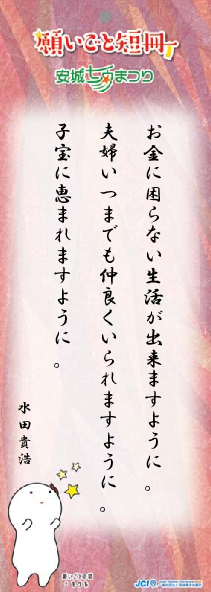 願いごと短冊
安城七夕まつり
お金に困らない生活が出来ますように。
夫婦いつまでも仲良くいられますように。
子宝に恵まれますように。
水田貴浩
願いごと
JCI